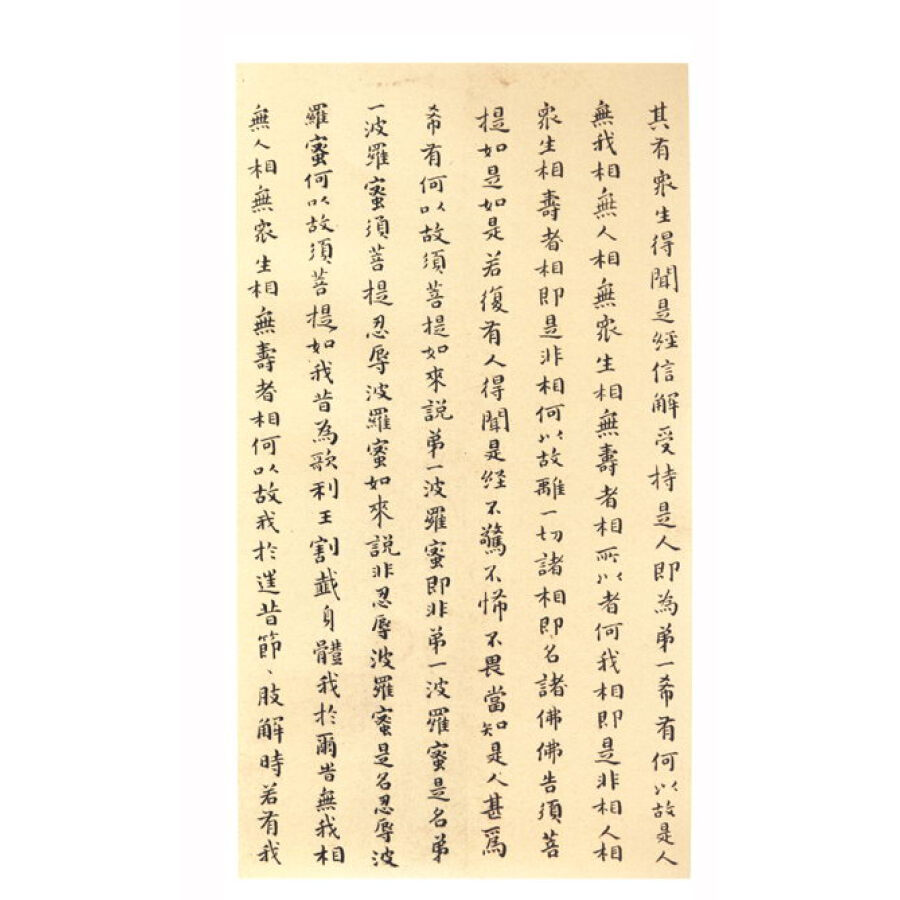 其有眾生得聞是經信解受持是人即為弟一希有何以故是人
無我相無人相無眾生相無壽者相所以者何我相即是非相人相
眾生相壽者相即是非相何以故離一切諸相即名諸佛佛告須菩
提如是如是若復有人得聞是經不驚不怖不畏當知是人甚為
希有何以故須菩提如來說弟一波羅蜜即非弟一波羅蜜是名弟
一波羅蜜須菩提忍辱波羅蜜如來說非忍辱波羅蜜是名忍辱波
羅蜜何以故須菩提如我昔為歌利王割截身體我於爾時無我相
無人相無眾生相無壽者相何以故我於往昔節、肢解時若有我